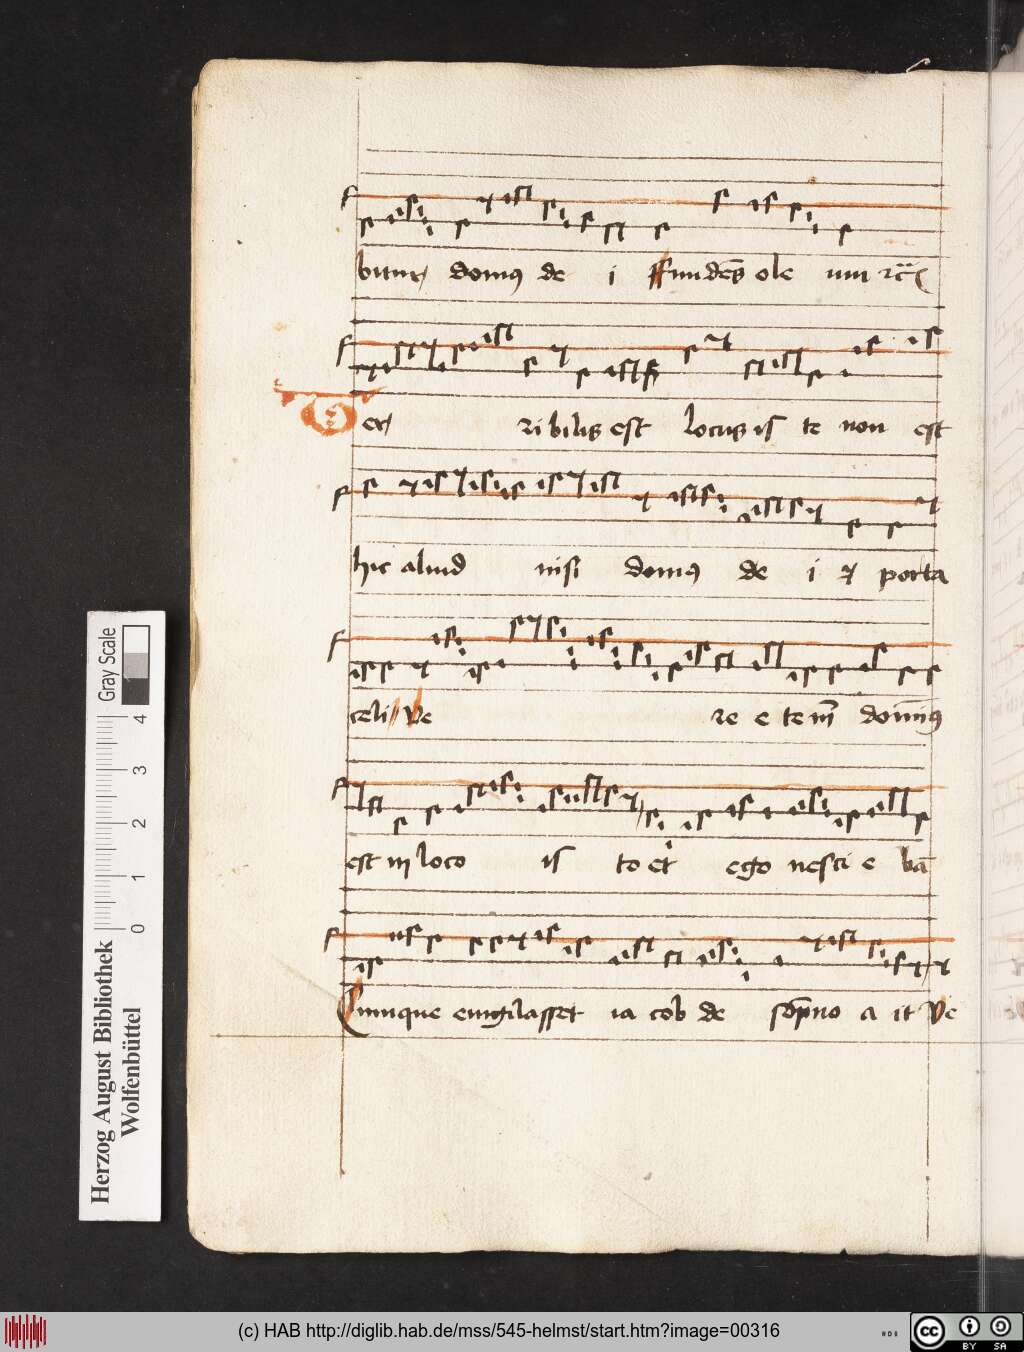 bitur domus de i ffundēs ole um
Ter ri bilis est locus is te non est
hic aliud nisi domus de i et porta
celi Ve re e tenī domīus
est in loco is to et ego nesci e bā
Cumque euigilasset ia cob de sōpno a it Ve
Gray Scale
0 1 2 3 4
Herzog August Bibliothek
Wolfenbüttel
(c) HAB http://diglib.hab.de/mss/545-helmst/start.htm?image=00316
cc BY SA